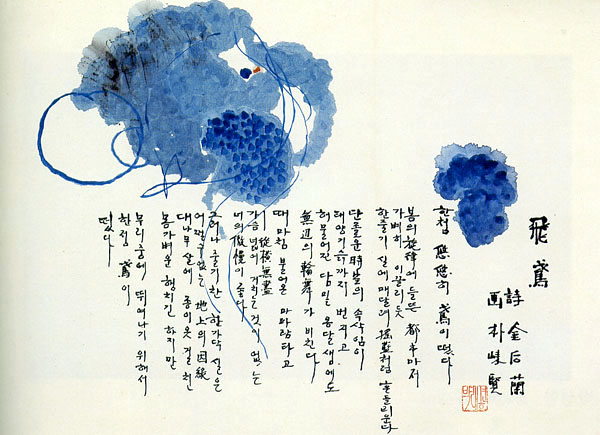 飛鳶
詩 金后蘭
画 朴崍賢
한점 悠悠히 鳶이 떴다
봄의 旋律에 들뜬 都市마저
가벼히 이끌리듯
한줄기 실에 매달려 흔들리운다
단조로운 속삭임이
태양기슭까지 번지고
허물어진 담밑 옹달샘에도
無邊의 輪舞가 비친다
때마침 불어온 마파람타고
縱橫無盡
넓이 거치는것이 없는
너의 傲慢이 좋다
그러나 줄기찬 한가닥 실은
어쩔수없는 地上의 因緣
대나무살에 종이옷 걸친
몸가벼운 행차긴 하지만
무리중에 뛰어나기 위해서
한점 鳶이
떴다